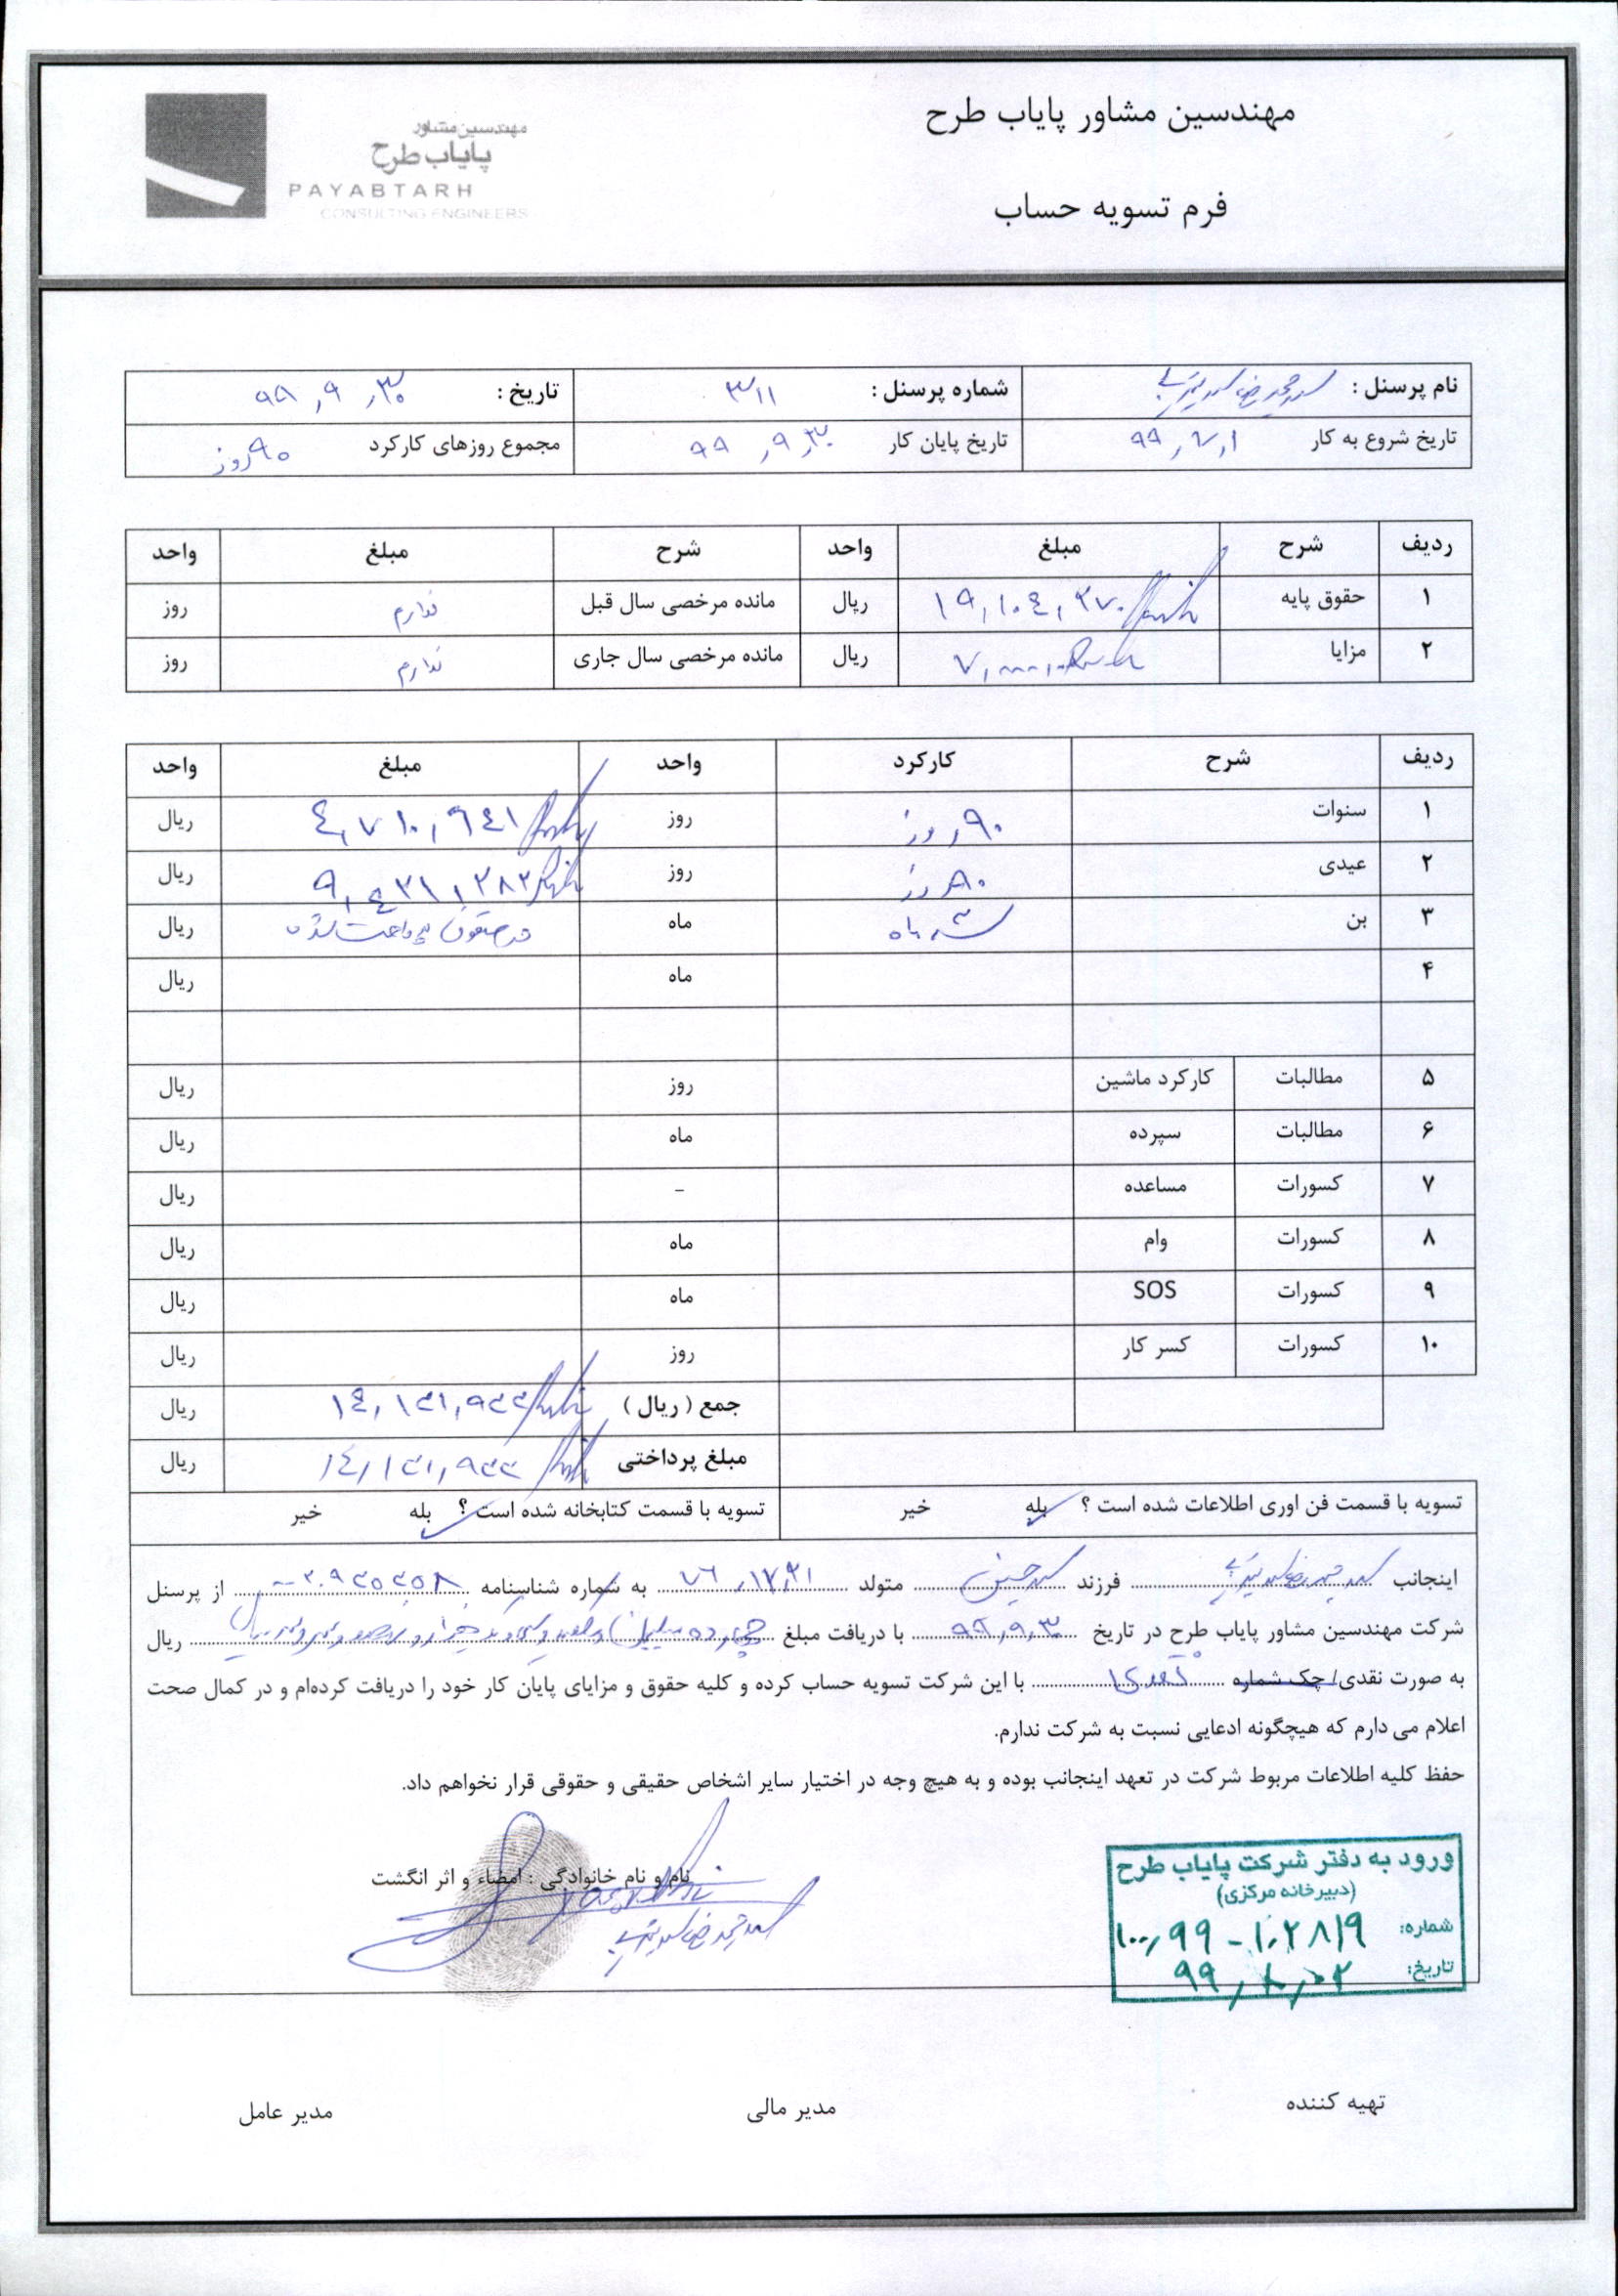 مهندسین مشاور پایاب طرح
فرم تسویه حساب
مهندسین مشاور
پایاب طرح
PAYABTARH
CONSULTING ENGINEERS
نام پرسنل : شماره پرسنل : ۳۱۱ تاریخ : ۹۹,۹,۳۰
تاریخ شروع به کار ۹۹,۷,۱ تاریخ پایان کار ۹۹,۹,۳۰ مجموع روزهای کارکرد ۹۰ روز
ردیف شرح مبلغ واحد شرح مبلغ واحد
۱ حقوق پایه ریال مانده مرخصی سال قبل ندارم روز
۲ مزایا ریال مانده مرخصی سال جاری ندارم روز
ردیف شرح کارکرد واحد مبلغ واحد
۱ سنوات ۹۰ روز روز ۴,۷۱۰,۹۶۱ ریال
۲ عیدی ۹۰ روز روز ریال
۳ بن سه ماه ماه ریال
۴ ماه ریال
۵ مطالبات کارکرد ماشین روز ریال
۶ مطالبات سپرده ماه ریال
۷ کسورات مساعده - ریال
۸ کسورات وام ماه ریال
۹ کسورات SOS ماه ریال
۱۰ کسورات کسر کار روز ریال
جمع ( ریال ) ۱۴,۱۳۱,۹۲۳ ریال
مبلغ پرداختی ۱۴,۱۳۱,۹۲۳ ریال
تسویه با قسمت فن اوری اطلاعات شده است ؟ بله خیر تسویه با قسمت کتابخانه شده است ؟ بله خیر
اینجانب فرزند سید حسین متولد ۷۶,۱۲,۲۱ به شماره شناسنامه از پرسنل
شرکت مهندسین مشاور پایاب طرح در تاریخ ۹۹,۹,۳۰ با دریافت مبلغ چهارده میلیون ریال
به صورت نقدی/ چک شماره نقدی با این شرکت تسویه حساب کرده و کلیه حقوق و مزایای پایان کار خود را دریافت کرده‌ام و در کمال صحت
اعلام می دارم که هیچگونه ادعایی نسبت به شرکت ندارم.
حفظ کلیه اطلاعات مربوط شرکت در تعهد اینجانب بوده و به هیچ وجه در اختیار سایر اشخاص حقیقی و حقوقی قرار نخواهم داد.
نام و نام خانوادگی : امضاء و اثر انگشت
ورود به دفتر شرکت پایاب طرح
(دبیرخانه مرکزی)
شماره: ۱۰۰,۹۹-۱,۲۸۱۹
تاریخ: ۹۹,۱۰,۰۲
تهیه کننده مدیر مالی مدیر عامل